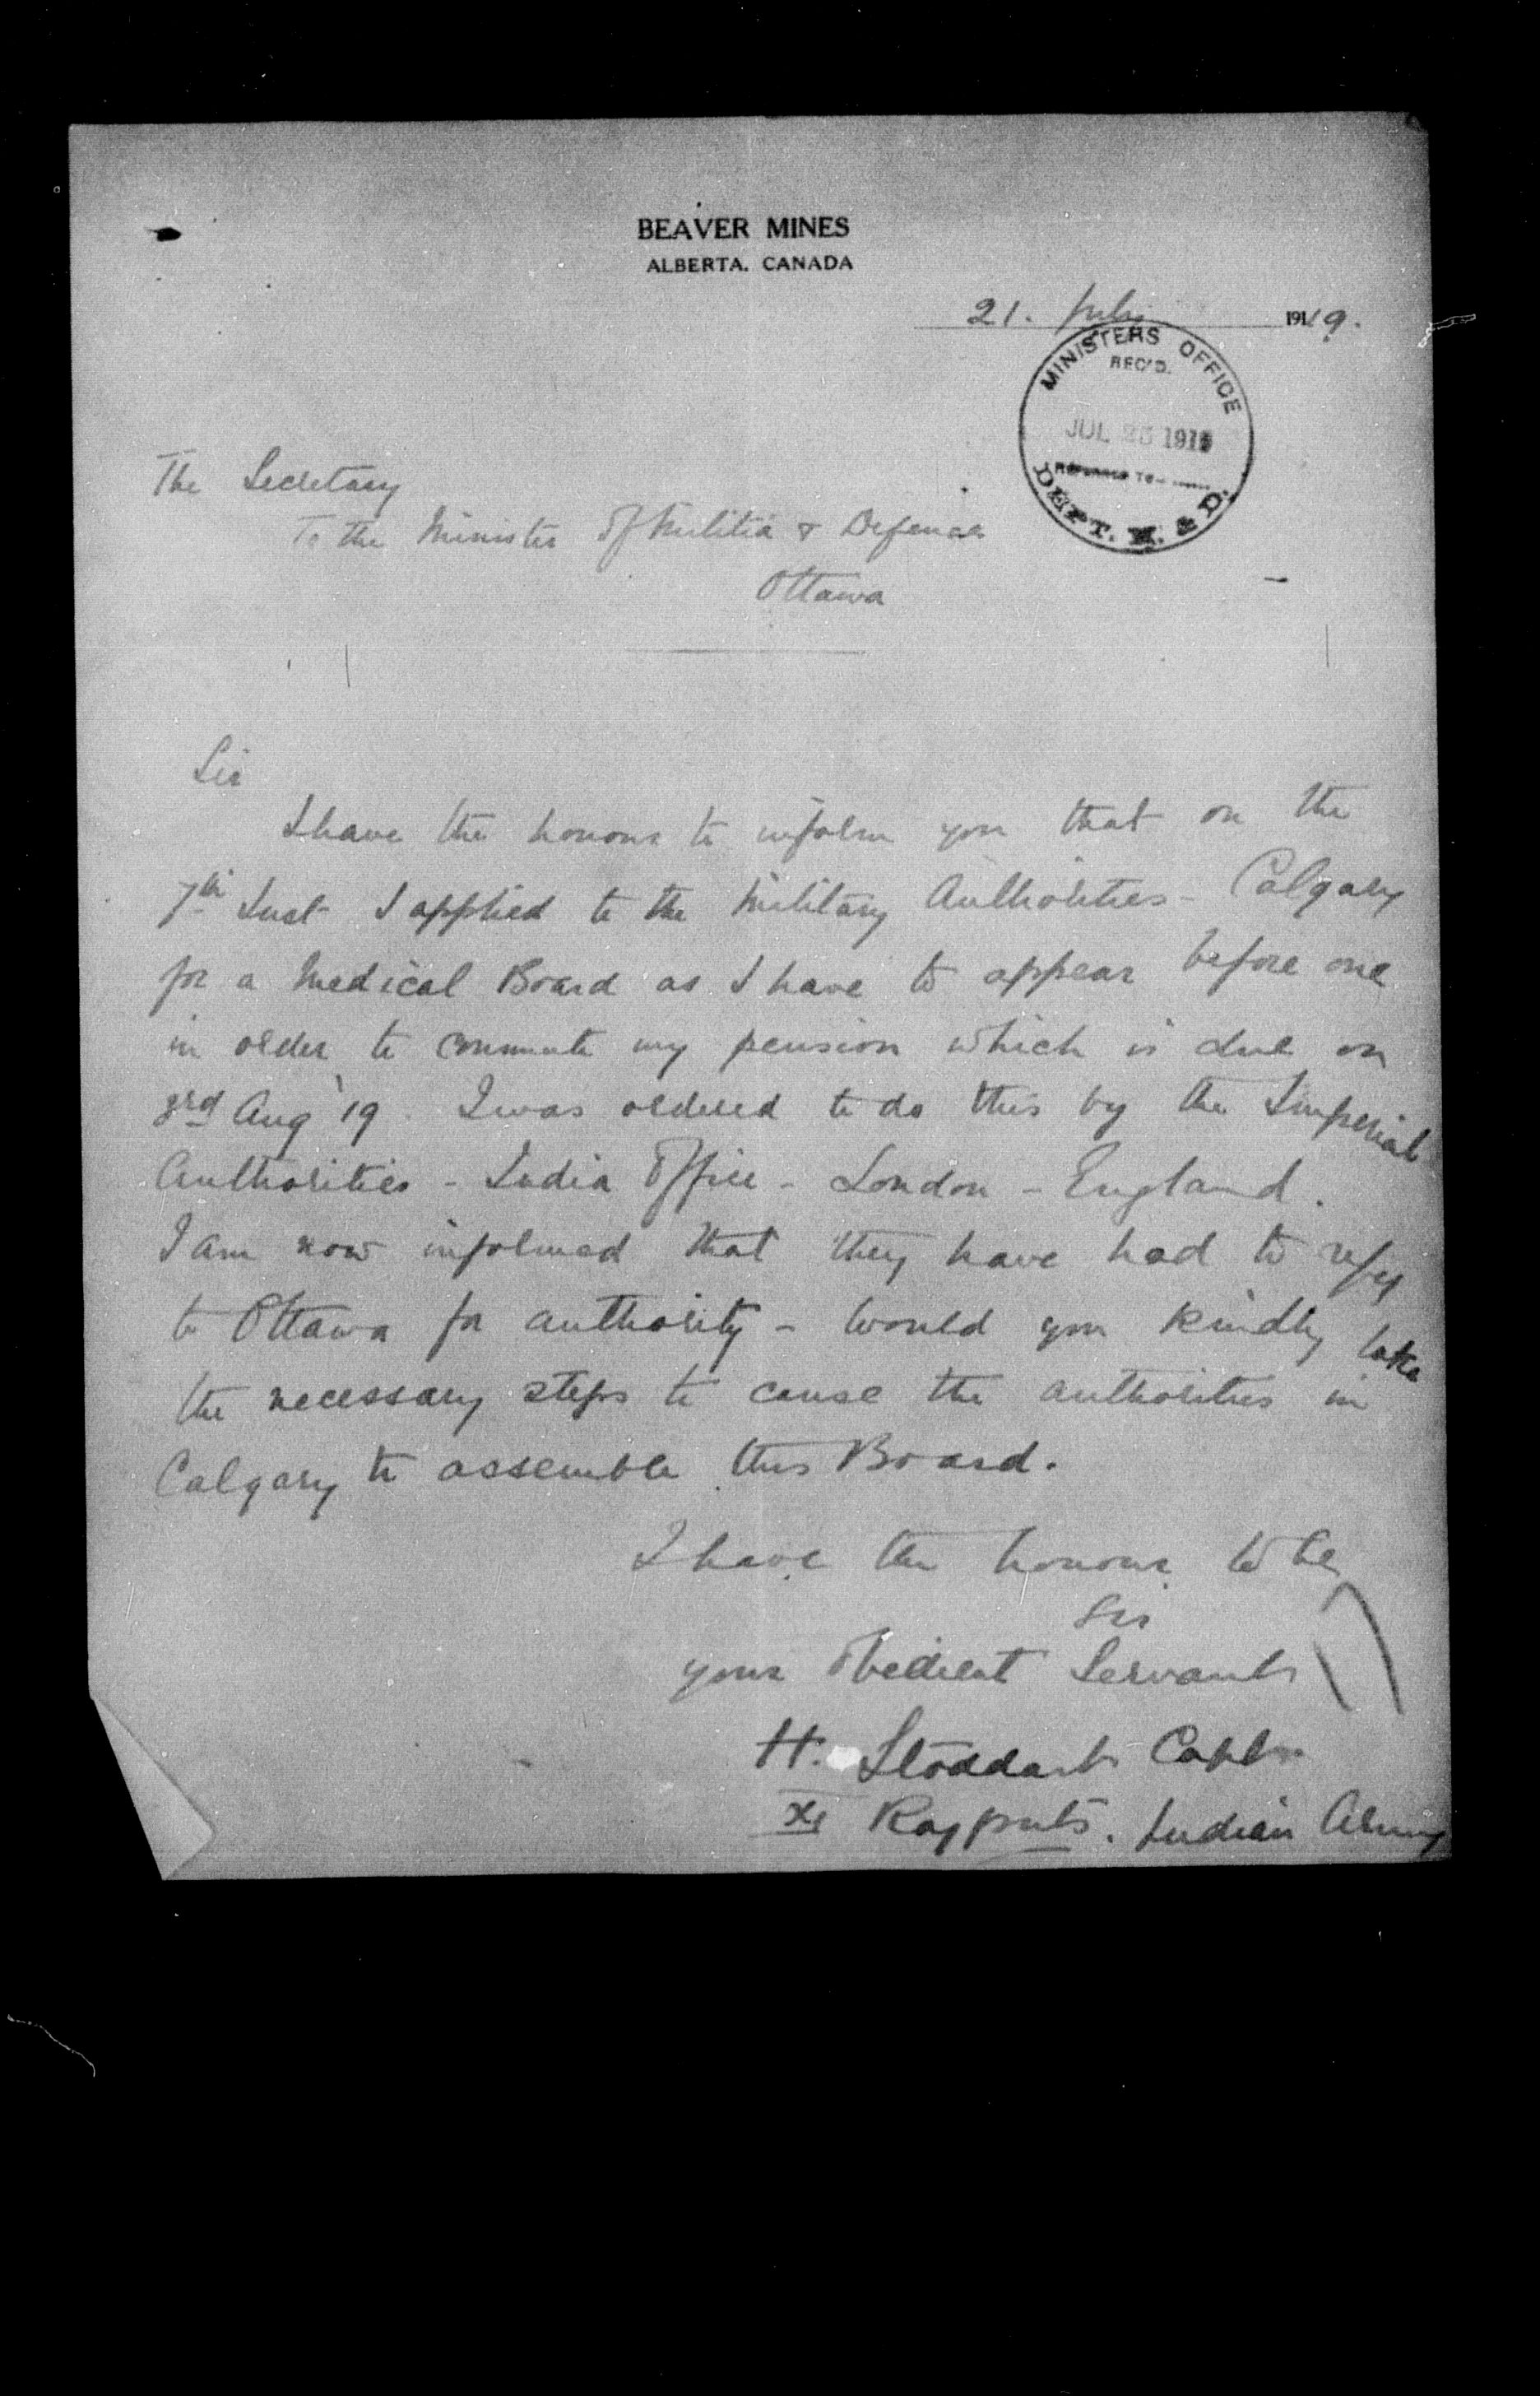 BEAVER MINES
ALBERTA. CANADA
21. July 1919.
MINISTERS OFFICE
REC'D.
JUL 25 1919
REFERRED TO
DEPT. M. & D.
The Secretary
To the Minister of Militia & Defence
Ottawa
Sir
I have the honour to inform you that on the
7th Inst I applied to the Military Authorities - Calgary
for a Medical Board as I have to appear before one
in order to commute my pension which is due on
3rd Aug '19. I was ordered to do this by the Imperial
Authorities - India Office - London - England.
I am now informed that they have had to refer
to Ottawa for authority - Would you kindly take
the necessary steps to cause the authorities in
Calgary to assemble this Board.
I have the honour to be
Sir
your Obedient Servant
H. Stoddart Capt.
Rajputs. Indian Army